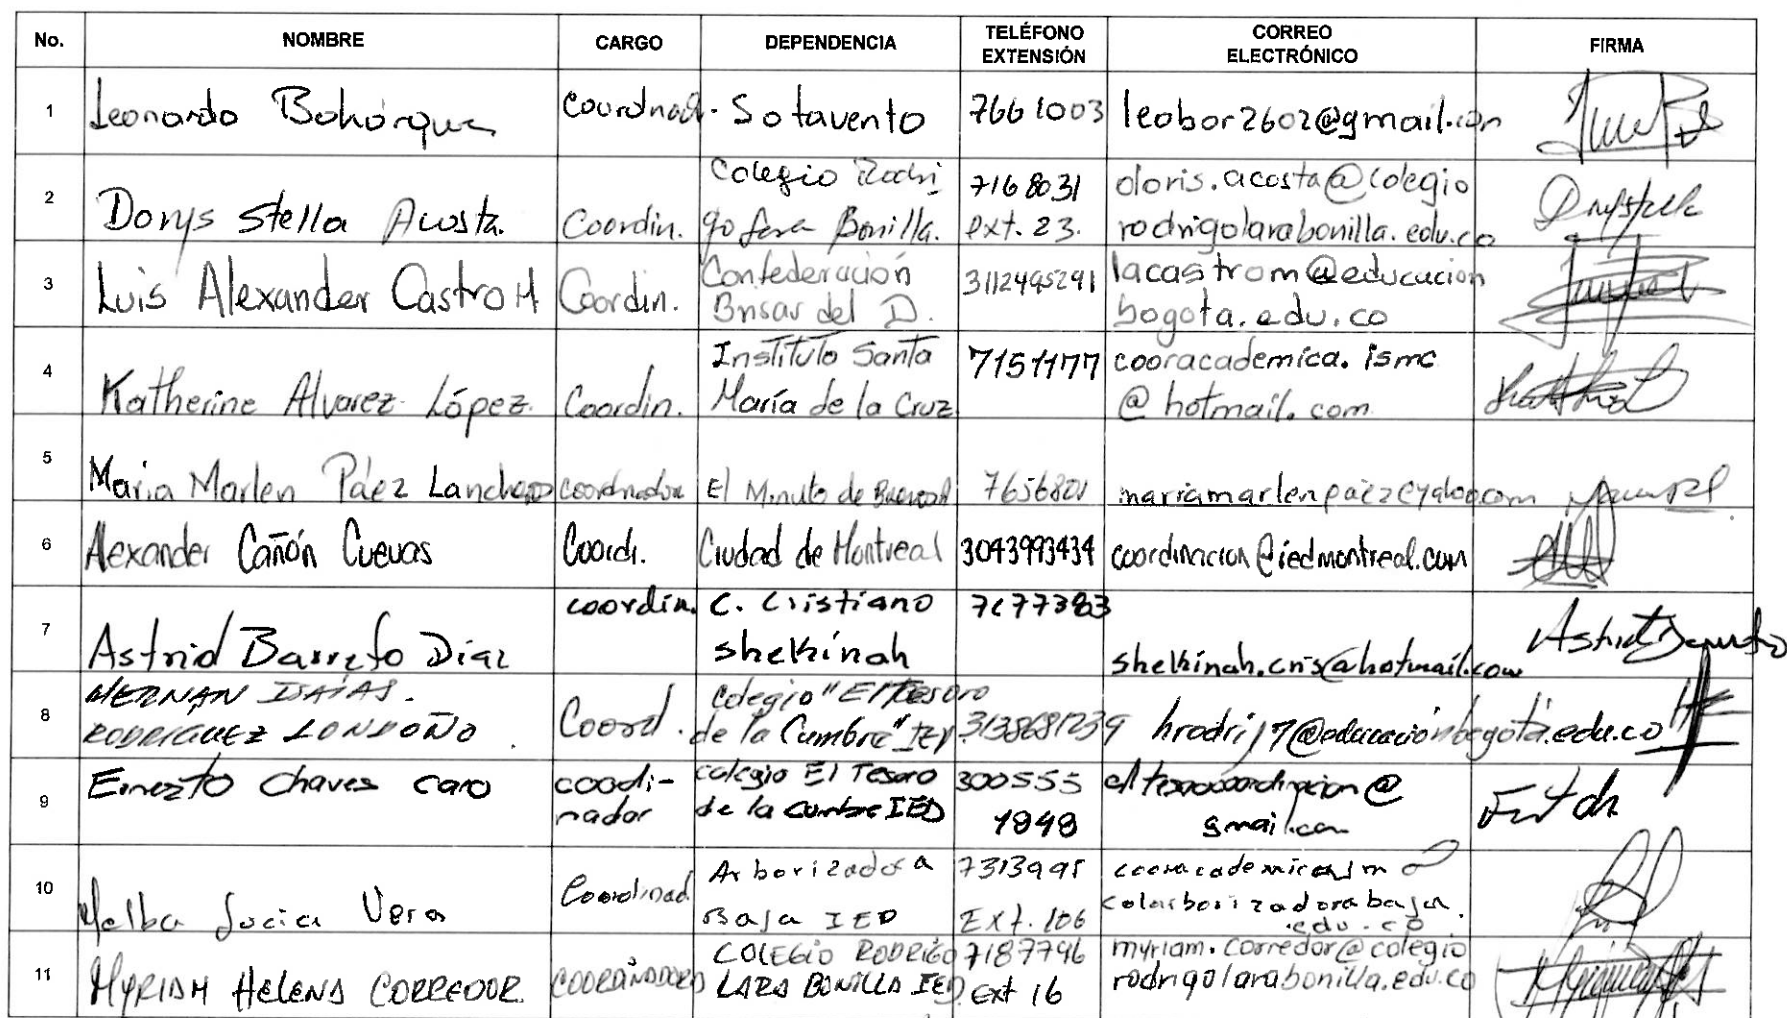 No. NOMBRE CARGO DEPENDENCIA TELÉFONO EXTENSIÓN CORREO ELECTRÓNICO FIRMA
1 Leonardo Bohórquez - Sotavento 7661003 leobor2602@gmail.com
2 Dorys Stella Acosta. Coordin. Colegio Rodri
go Lara Bonilla. 7168031
ext. 23. doris.acosta@colegio
rodrigolarabonilla.edu.co
3 Luis Alexander Castro M Coordin. Confederación
Brisas del D. 3112495291 lacastrom@educacion
bogota.edu.co
4 Katherine Alvarez López. Coordin. Instituto Santa
María de la Cruz 7151177 cooracademica.ismc
@hotmail.com
5 Maria Marlen Páez Lancheros coordinadora El Minuto de 7656801 mariamarlenpaez@yahoo.com
6 Alexander Cañón Cuevas Coordi. Ciudad de Montreal 3043993434 coordinacion@iedmontreal.com
7 Astrid Barreto Díaz coordin. C. Cristiano
shekinah shekinah.cris@hotmail.com Astrid Barreto
8 HERNAN ISAÍAS.
RODRIGUEZ LONDOÑO. Coord. Colegio "El Tesoro
de la Cumbre" IED hrodrij7@educaciónbogotá.edu.co
9 Ernezto Chaves Caro coodi-
nador colegio El Tesoro
de la Cumbre IED 300555
1848 @
gmail.com
10 Lucia Vera Coordinad Arborizadora
Baja IED 7313995
Ext. 106 colarborizadorabaja.
edu.co
11 MYRIAM HELENA CORREDOR. COORDINADORA COLEGIO RODRIGO
LARA BONILLA IED 7187746
Ext 16 myriam.corredor@colegio
rodrigolarabonilla.edu.co